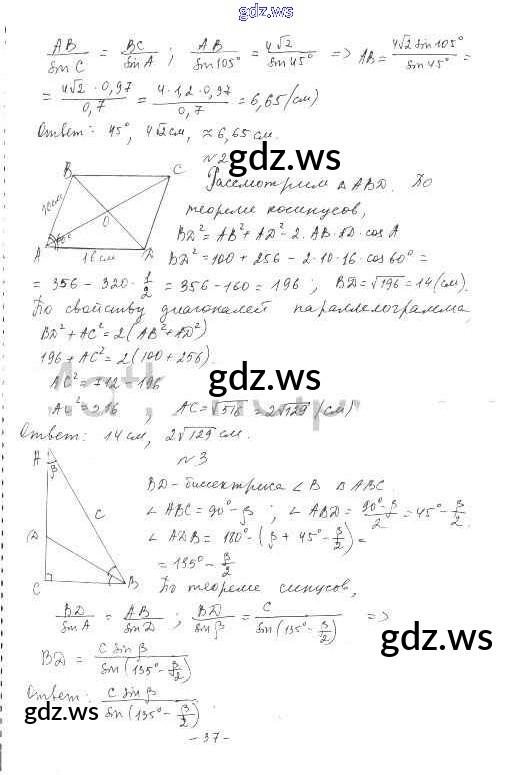 gdz.ws
AB/sin C = BC/sin A ; AB/sin 105° = 4√2/sin 45° => AB = 4√2 sin 105°/sin 45° =
= 4√2 · 0,97/0,7 = 4 · 1,2 · 0,97/0,7 = 6,65 (см)
Ответ: 45°, 4√2 см, ≈ 6,65 см.
N 2
gdz.ws
B C
Рассмотрим △ABD. По
теореме косинусов,
10см
O
BD² = AB² + AD² - 2 · AB · AD · cos A
A 60° 16см D
BD² = 100 + 256 - 2 · 10 · 16 · cos 60° =
= 356 - 320 · 1/2 = 356 - 160 = 196 ; BD = √196 = 14 (см).
По свойству диагоналей параллелограмма,
BD² + AC² = 2(AB² + AD²)
196 + AC² = 2(100 + 256).
gdz.ws
AC² = 712 - 196
AC² = 516 , AC = √516 = 2√129 (см)
Ответ: 14 см, 2√129 см.
N 3
A β
BD - биссектриса ∠B △ABC.
c
∠ABC = 90° - β ; ∠ABD = (90° - β)/2 = 45° - β/2.
D
∠ADB = 180° - (β + 45° - β/2) =
= 135° - β/2
C B
По теореме синусов,
BD/sin A = AB/sin D ; BD/sin β = c/sin(135° - β/2) =>
gdz.ws
BD = c sin β/sin(135° - β/2)
Ответ: c sin β/sin(135° - β/2).
gdz.ws
- 37 -
gdz.ws